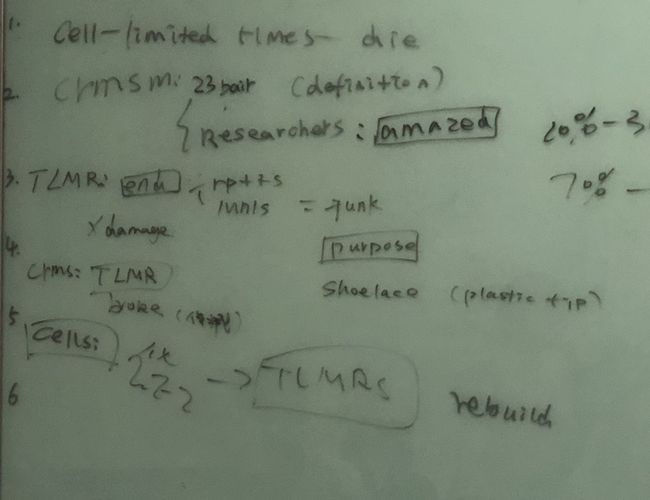 1. Cell-limited times- die
2. crmsm: 23 pair (definition)
Researchers: amazed 20%-3
3. TLMR: end rpt+s = junk 70% -
x damage
4. purpose
crms: TLMR
broke
shoelace (plastic tip)
5 cells: → TLMRs rebuild
6